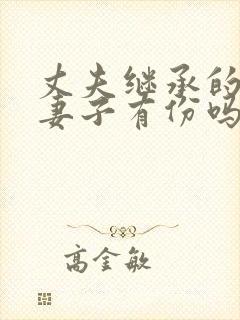 丈夫继承的
妻子有份吗
高金敏